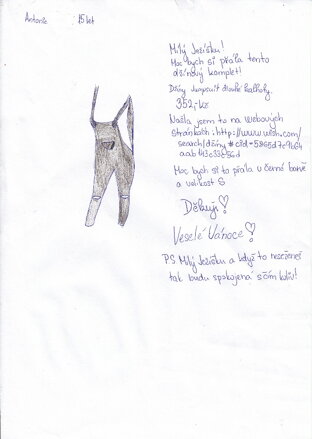 Antonie 15 let
Milý Ježíšku!
Moc bych si přála tento
džínový komplet!
Džíny Jumpsuit dlouhé kalhoty.
352,-Kč
Našla jsem to na webových
stránkách: http://www.wish.com/
search/džíny
Moc bych si to přála v černé barvě
a velikost S
Děkuji!
Veselé Vánoce!
PS Milý Ježíšku a když to neseženeš
tak budu spokojená s čím koliv!